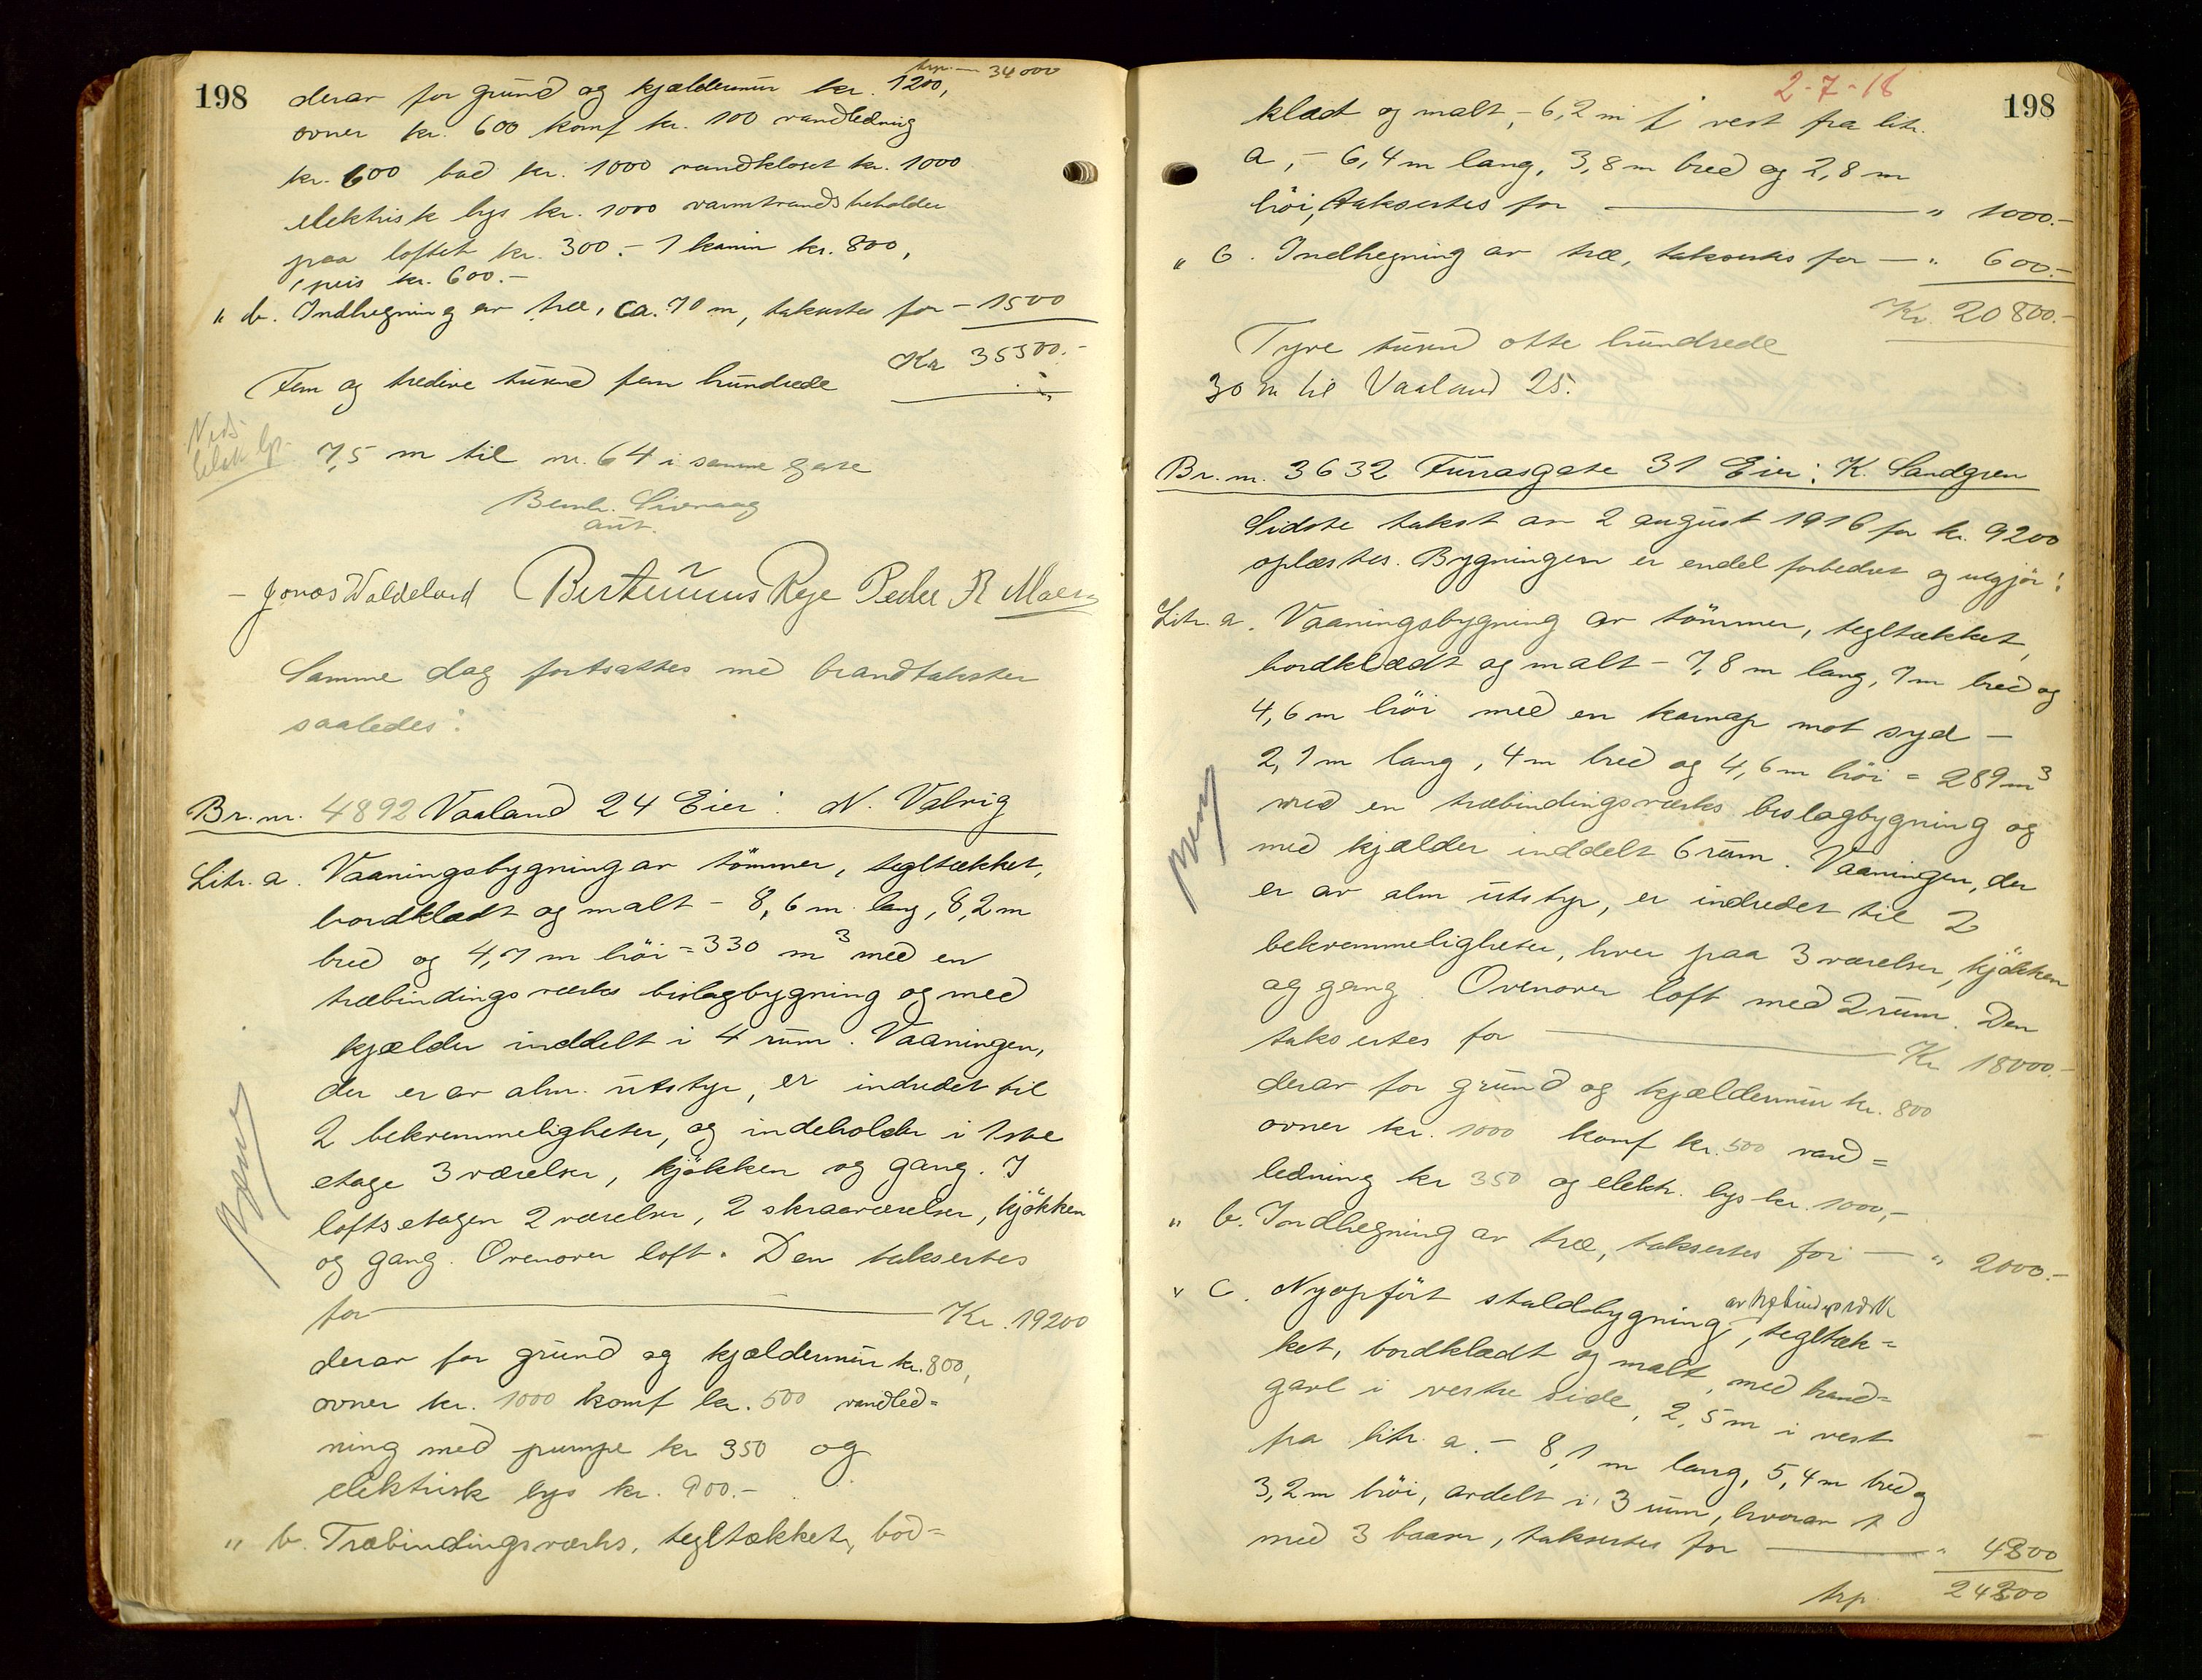 198
trp. — 34000
derav for grund og kjældermur kr. 1200,
ovner kr. 600 komf kr. 100 vandledning
kr. 600 bad kr. 1000 vandkloset kr. 1000
elektrisk lys kr. 1000 varmtvandsbeholder
paa loftet kr. 300.- 1 kamin kr. 800,
1 peis kr. 600.-
" b. Indhegning av træ, ca. 70 m, taksertes for - 1500
Kr 35500.-
Fem og tredive tusind fem hundrede
7,5 m til nr. 64 i samme gate
Jonas Waldeland Bertinius Rege Peder R Maeng
Samme dag fortsattes med brandtakster
saaledes:
Br. nr. 4892 Vaaland 24 Eier: N. Valvig
Litr. a. Vaaningsbygning av tömmer, tegltækket,
bordklædt og malt - 8,6 m lang, 8,2 m
bred og 4,7 m höi = 330 m³ med en
træbindingsverks bislagbygning og med
kjælder inddelt i 4 rum. Vaaningen,
der er av alm. utstyr, er indredet til
2 bekvemmeligheter, og indeholder i 1ste
etage 3 værelser, kjökken og gang. I
loftsetagen 2 værelser, 2 skraaværelser, kjökken
og gang. Ovenover loft. Den taksertes
for — Kr. 19200
derav for grund og kjældermur kr. 800,
ovner kr. 1000 komf kr. 500 vandled=
ning med pumpe kr 350 og
elektrisk lys kr. 900.-
" b. Træbindingsverks, tegltækket, bod=
2-7-18
198
klædt og malt, - 6,2 m i vest fra litr.
a, - 6,4 m lang, 3,8 m bred og 2,8 m
höi, taksertes for — " 1000.-
" c. Indhegning av træ, taksertes for — " 600.-
Kr. 20800.-
Tyve tusind otte hundrede
30 m til Vaaland 25.
Br. nr. 3632 Furrasgate 31 Eier: K. Sandgren
Sidste takst av 2 august 1916 for kr. 9200
oplæstes. Bygningen er endel forbedret og utgjör:
Litr. a. Vaaningsbygning av tömmer, tegltækket,
bordklædt og malt - 7,8 m lang, 7 m bred og
4,6 m höi med en karnap mot syd -
2,1 m lang, 4 m bred og 4,6 m höi = 289 m³
med en træbindingsverks bislagbygning og
med kjælder inddelt 6 rum. Vaaningen, der
er av alm utstyr, er indredet til 2
bekvemmeligheter, hver paa 3 værelser, kjökken
og gang. Ovenover loft med 2 rum. Den
taksertes for — Kr 18000.-
derav for grund og kjældermur kr. 800
ovner kr. 1000 komf kr. 500 vand=
ledning kr 350 og elektr. lys kr. 1000,-
" b. Indhegning av træ, taksertes for — " 2000.-
av træbindingsverk
" c. Nyopfört staldbygning, tegltæk=
ket, bordklædt og malt, med brand=
gavl i vestre side, 2,5 m i vest
fra litr. a. - 8,1 m lang, 5,4 m bred og
3,2 m höi, avdelt i 3 rum, hvorav 1
med 3 baaser, taksertes for — " 4300
trp. 24300